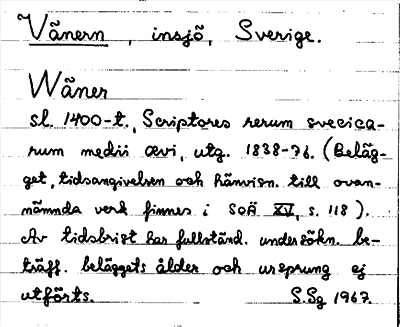 Vänern, insjö, Sverige.
Wäner
sl. 1400-t., Scriptores rerum svecica-
rum medii ævi, utg. 1838-76. (Beläg-
get, tidsangivelsen och hänvisn. till ovan-
nämnda verk finnes i SOÄ XV, s. 118).
Av tidsbrist har fullständ. undersökn. be-
träff. beläggets ålder och ursprung ej
utförts. S.Sg 1967.